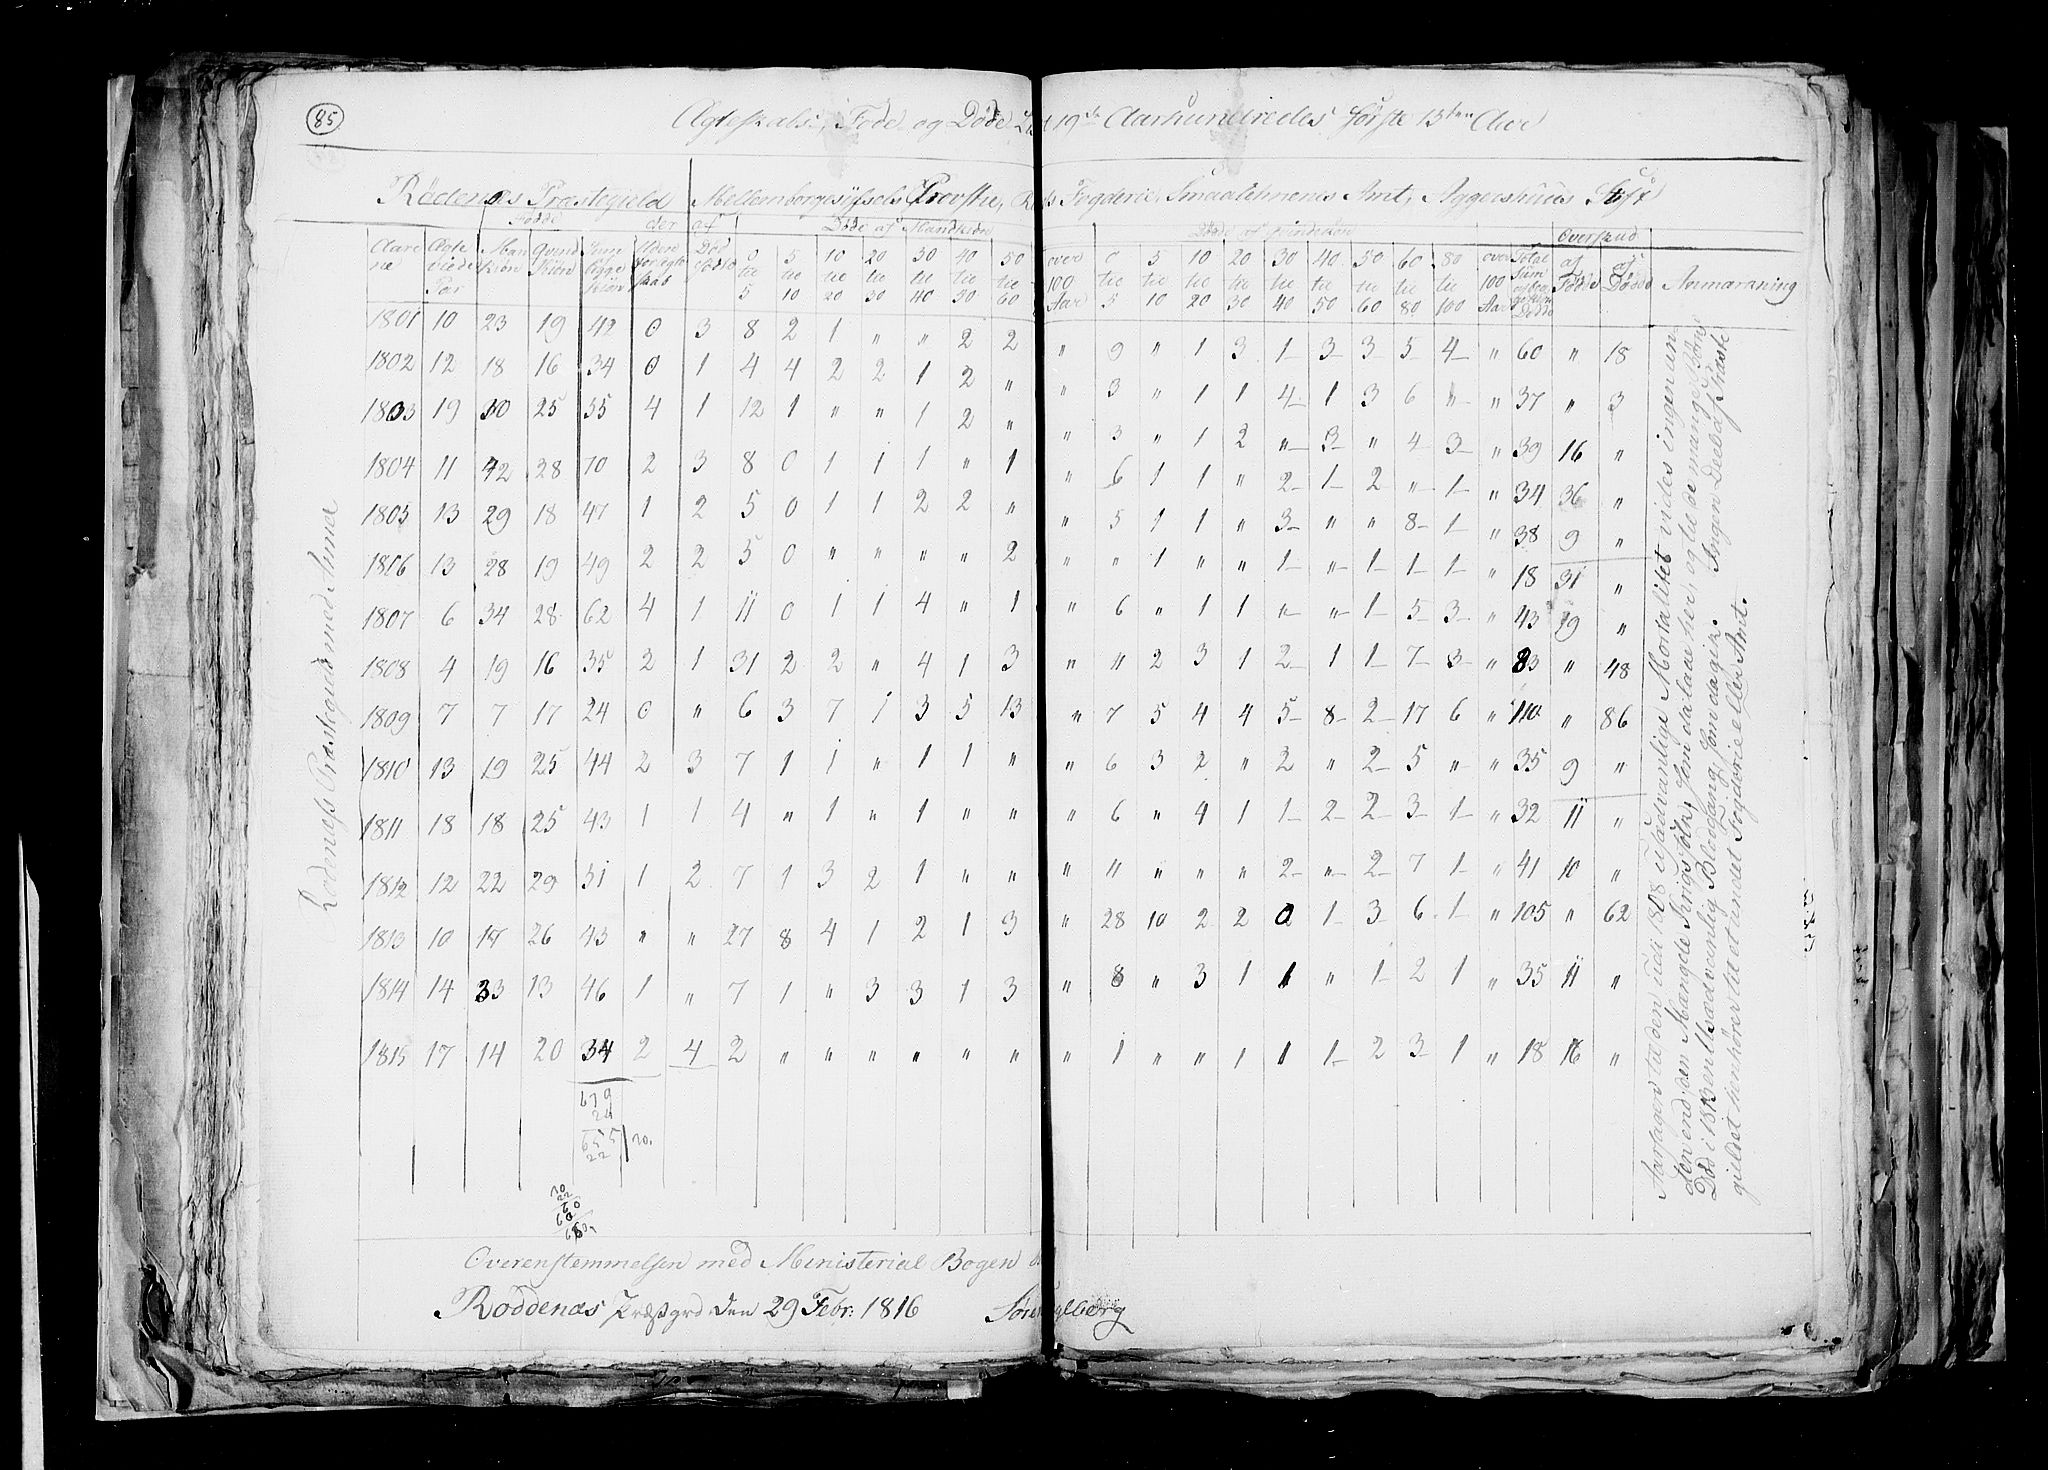 85
Ægteskabs, Føde og Døde 19de Aarhundredes første 15ten Aar
Rödenæs Præstegield Mellemborgesysels Provstie, Fogderie, Smaalehnenes Amt, Aggershuus Stift
Fødde der af Døde af Mandkiøn Døde af Qvindekiøn Overskud
Aarene Ægteviede Par Mandkiøn Qvindkiøn Sum begge Kiøn Uden for Ægteskab Dødfødde 0 til 5 5 til 10 10 til 20 20 til 30 30 til 40 40 til 50 50 til 60 over 100 Aar 0 til 5 5 til 10 10 til 20 20 til 30 30 til 40 40 til 50 50 til 60 60 til 80 80 til 100 over 100 Aar Døde af Fødde af Døde Anmærkning
1801 10 23 19 42 0 3 8 2 1 " " 2 2 " 9 " 1 3 1 3 3 5 4 " 60 " 18
1802 12 18 16 34 0 1 4 4 2 2 1 2 " " 3 " 1 1 4 1 3 6 " " 37 " 3
1803 19 30 25 55 4 1 12 1 " " 1 2 " " 3 " 1 2 " 3 " 4 3 " 39 16 "
1804 11 42 28 70 2 3 8 0 1 1 1 " 1 " 6 1 1 " 2 1 2 " 1 " 34 36 "
1805 13 29 18 47 1 2 5 0 1 1 2 2 " " 5 1 1 " 3 " " 8 1 " 38 9 "
1806 13 28 19 49 2 2 5 0 " " " " 2 " " 1 " " 1 " 1 1 1 " 18 31 "
1807 6 34 28 62 4 1 11 0 1 1 4 " 1 " 6 " 1 1 " " 1 5 3 " 43 19 "
1808 4 19 16 35 2 1 31 2 2 " 4 1 3 " 11 2 3 1 2 1 1 7 3 " 83 " 48
1809 7 7 17 24 0 " 6 3 7 1 3 5 13 " 7 5 4 4 5 8 2 17 6 " 110 " 86
1810 13 19 25 44 2 3 7 1 1 " 1 1 " " 6 3 2 " 2 " 2 5 " " 35 9 "
1811 18 18 25 43 1 1 4 " 1 " 1 " " " 6 " 4 1 1 2 2 3 1 " 32 11 "
1812 12 22 29 51 1 2 7 1 3 2 1 " " " 11 " " " 2 " 2 7 1 " 41 10 "
1813 10 17 26 43 " " 27 8 4 1 2 1 3 " 28 10 2 2 0 1 3 6 1 " 105 " 62
1814 14 33 13 46 1 " 7 1 " 3 3 1 3 " 8 " 3 1 1 " 1 2 1 " 35 11 "
1815 17 14 20 34 2 4 2 " " " " " " " 1 " " 1 1 1 2 3 1 " 18 16 "
679
24
655 20.
22
Rödenæss Præstegield med Annex
Aarsagen til den udi 1808 usædvanlige Mortalitet vides ingen anden end: den Mængde Krigsfolk, som da laae her, og til de mange som døde i 1813 en usædvanlig Blodgang, som da gik. Ingen Deel af Præstegieldet henhører til et andet Fogderie eller Amt.
Overenstemmelsen med Ministerial Bogen
Röddenæs Præstgrd den 29 Febr. 1816